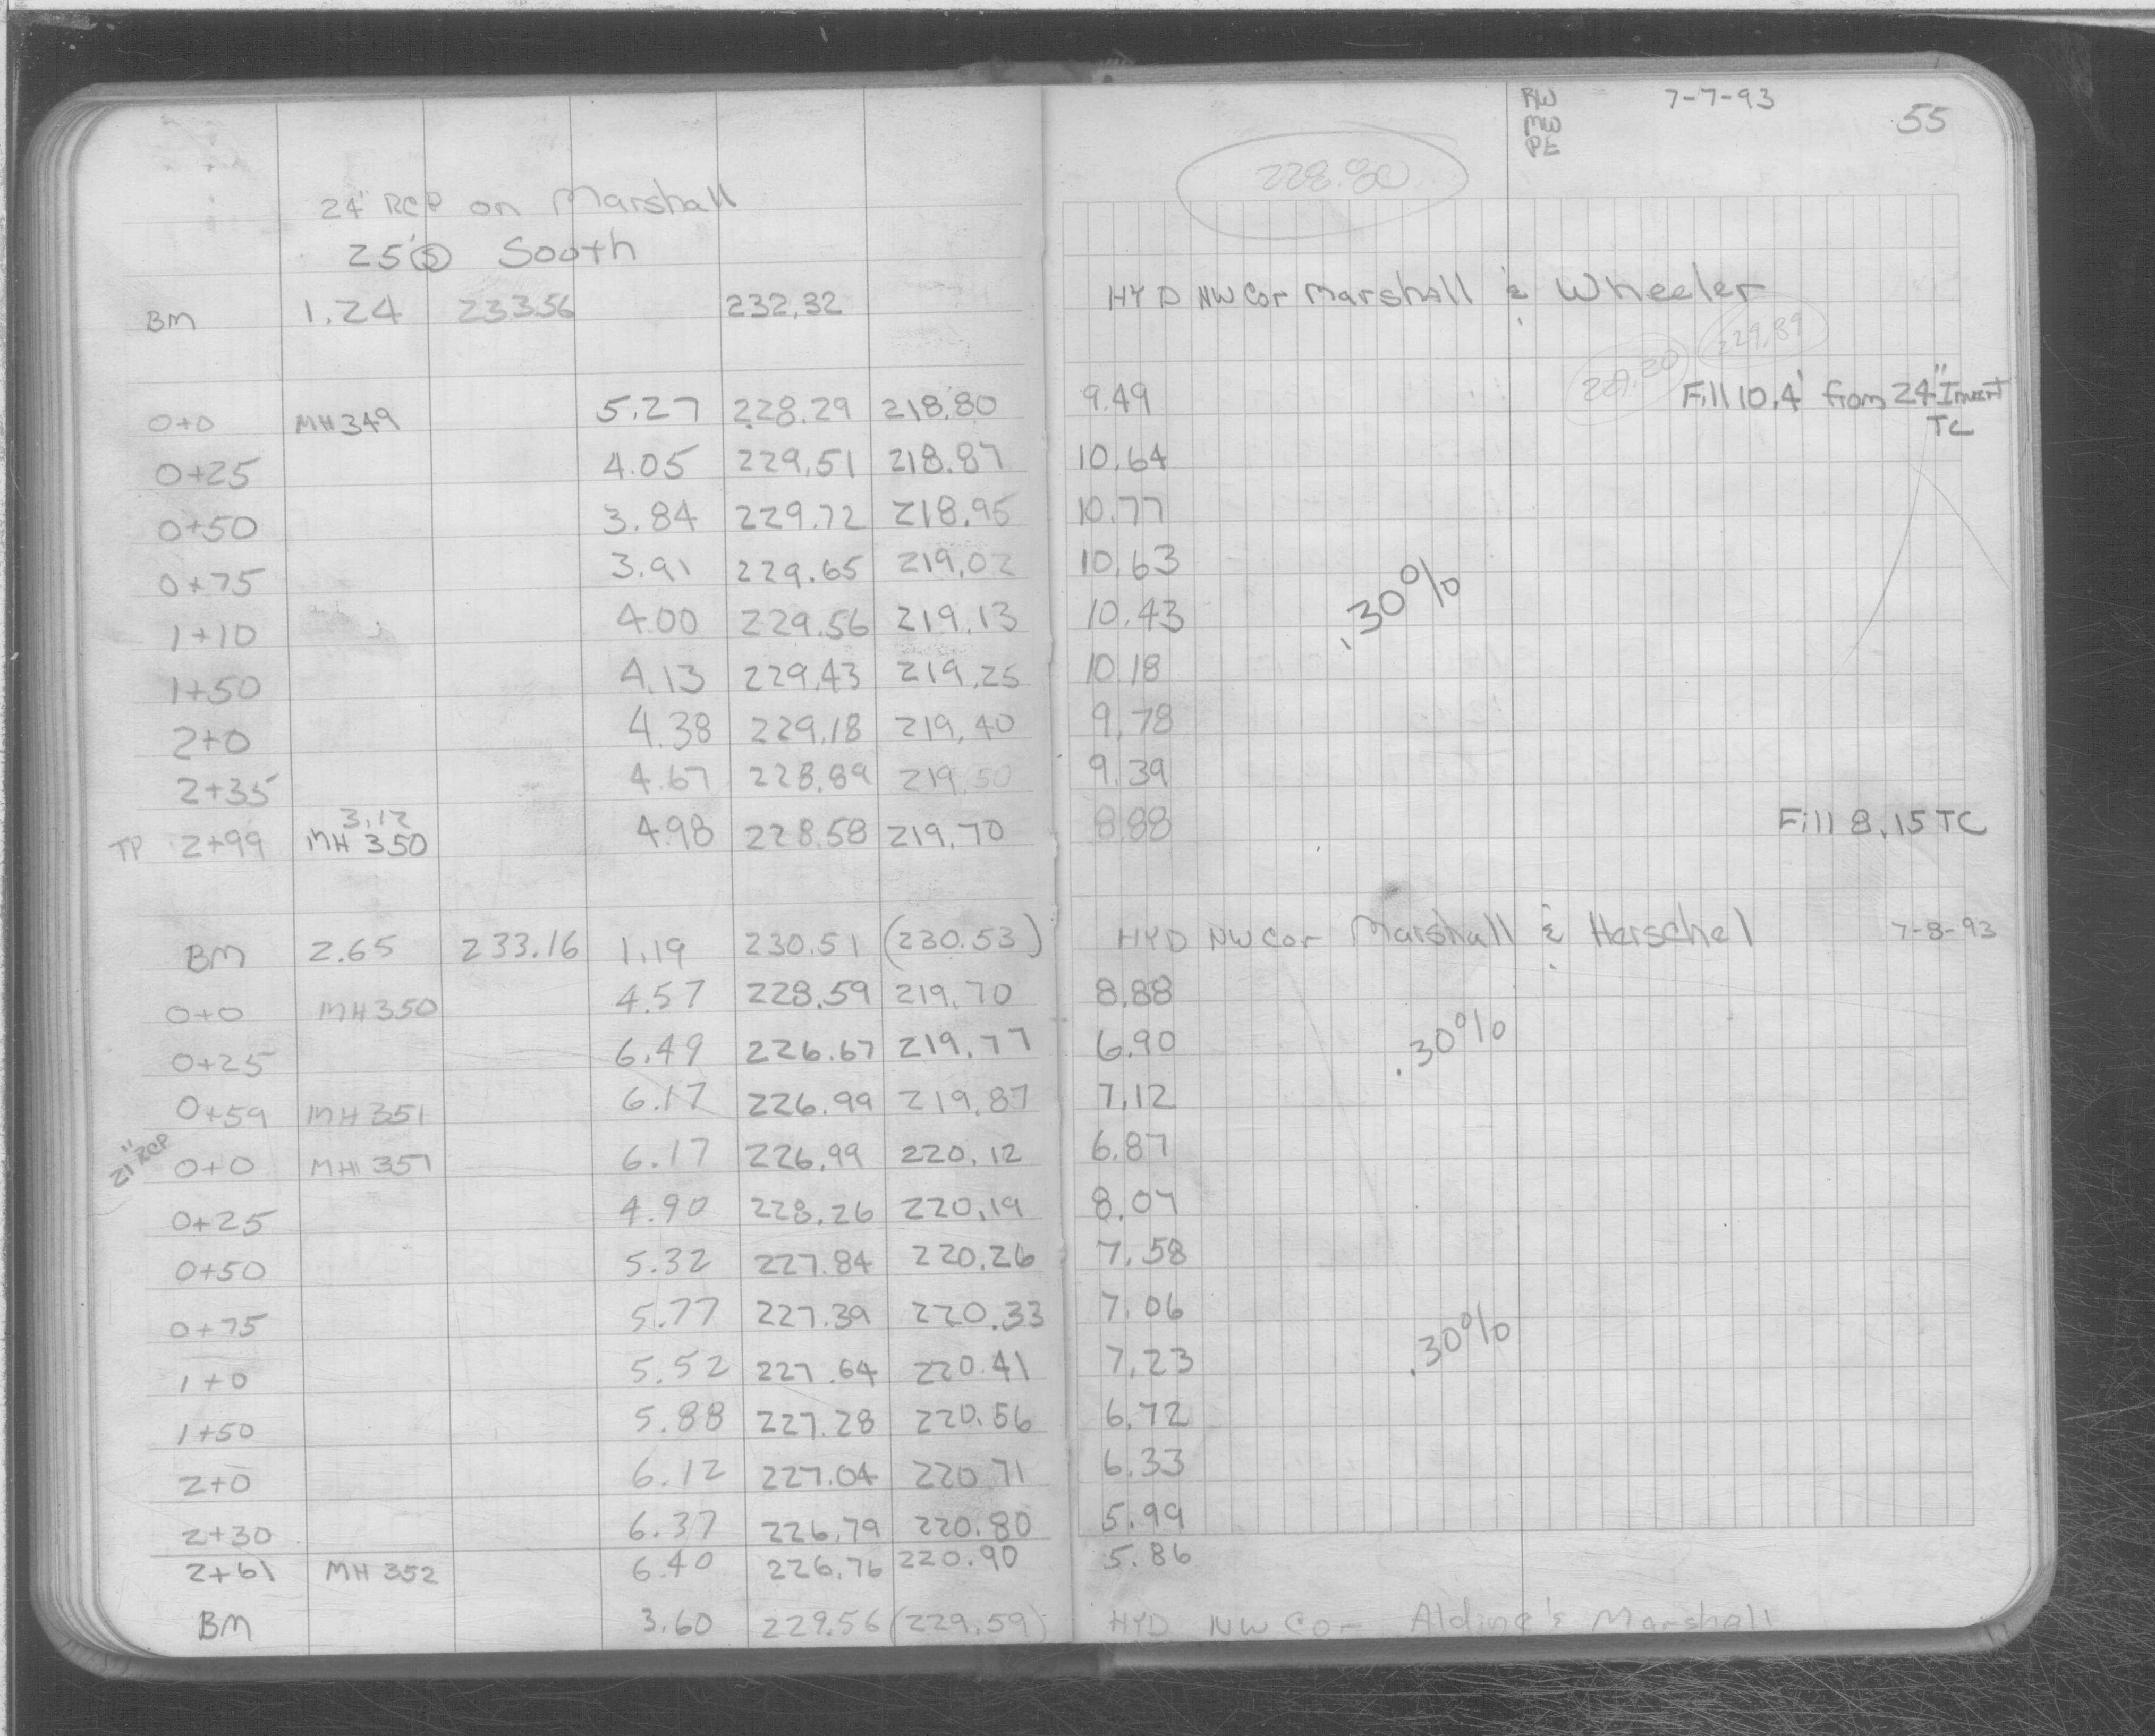 RW 7-7-93 55
MW
PE
228.80
24" RCP on Marshall
25' Ⓢ Sooth
BM 1.24 233.56 232.32 HYD NW Cor Marshall & Wheeler
229.89
0+0 MH 349 5.27 228.29 218.80 9.49 Fill 10.4' from 24" Invert
TC
0+25 4.05 229.51 218.87 10.64
0+50 3.84 229.72 218.95 10.77
0+75 3.91 229.65 219.02 10.63
.30%
1+10 4.00 229.56 219.13 10.43
1+50 4.13 229.43 219.25 10.18
2+0 4.38 229.18 219.40 9.78
2+35 4.67 228.89 219.50 9.39
3.12
TP 2+99 MH 350 4.98 228.58 219.70 8.88 Fill 8.15 TC
BM 2.65 233.16 1.19 230.51 (230.53) HYD NW Cor Marshall & Herschel 7-8-93
0+0 MH 350 4.57 228.59 219.70 8.88
0+25 6.49 226.67 219.77 6.90 .30%
0+59 MH 351 6.17 226.99 219.87 7.12
21" RCP 0+0 MH 351 6.17 226.99 220.12 6.87
0+25 4.90 228.26 220.19 8.07
0+50 5.32 227.84 220.26 7.58
0+75 5.77 227.39 220.33 7.06
1+0 5.52 227.64 220.41 7.23 .30%
1+50 5.88 227.28 220.56 6.72
2+0 6.12 227.04 220.71 6.33
2+30 6.37 226.79 220.80 5.99
2+61 MH 352 6.40 226.76 220.90 5.86
BM 3.60 229.56 (229.59) HYD NW Cor Aldine & Marshall